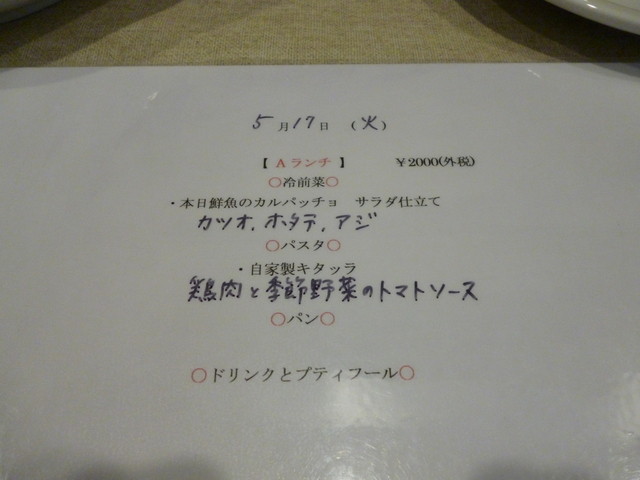 5月17日 (火)
【 Aランチ 】 ￥2000(外税)
○冷前菜○
・本日鮮魚のカルパッチョ サラダ仕立て
カツオ, ホタテ, アジ
○パスタ○
・自家製キタッラ
鶏肉と季節野菜のトマトソース
○パン○
○ドリンクとプティフール○